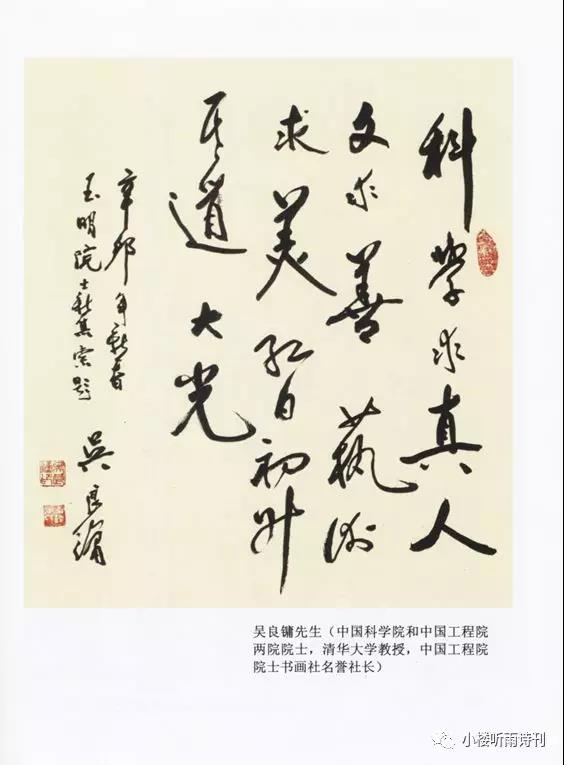 科學求真人
文求善藝術
求美红日初升
其道大光
辛卯年新春
玉明院士新集索题
吳良镛
吴良镛先生（中国科学院和中国工程院
两院院士，清华大学教授，中国工程院
院士书画社名誉社长）
小楼听雨诗刊